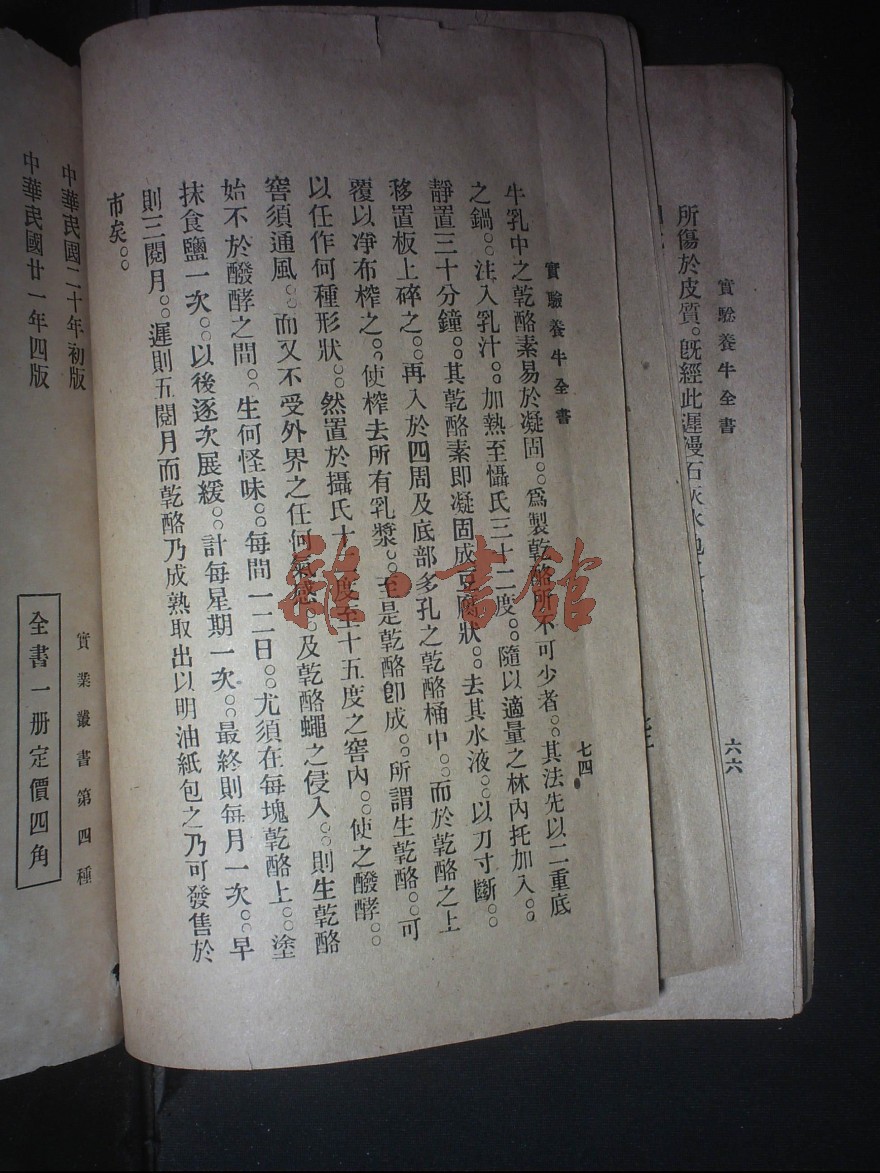 實驗養牛全書
六六
所傷於皮質。既經此遲漫石灰水
實驗養牛全書
七四
牛乳中之乾酪素易於凝固。。爲製乾酪所不可少者。。其法先以二重底
之鍋。。注入乳汁。。加熱至懾氏三十二度。。隨以適量之林內托加入。。
靜置三十分鐘。。其乾酪素即凝固成豆腐狀。。去其水液。。以刀寸斷。。
移置板上碎之。。再入於四周及底部多孔之乾酪桶中。。而於乾酪之上
覆以凈布榨之。。使榨去所有乳漿。。至是乾酪卽成。。所謂生乾酪。。可
以任作何種形狀。。然置於攝氏十度至十五度之窖內。。使之醱酵。。
窖須通風。。而又不受外界之任何氣感。。及乾酪蠅之侵入。。則生乾酪
始不於醱酵之間。。生何怪味。。每間一二日。。尤須在每塊乾酪上。。塗
抹食鹽一次。。以後逐次展緩。。計每星期一次。。最終則每月一次。。早
則三閱月。。遲則五閱月而乾酪乃成熟取出以明油紙包之乃可發售於
市矣。。
中華民國二十年初版
中華民國廿一年四版
實業叢書第四種
全書一册定價四角
雜·書館